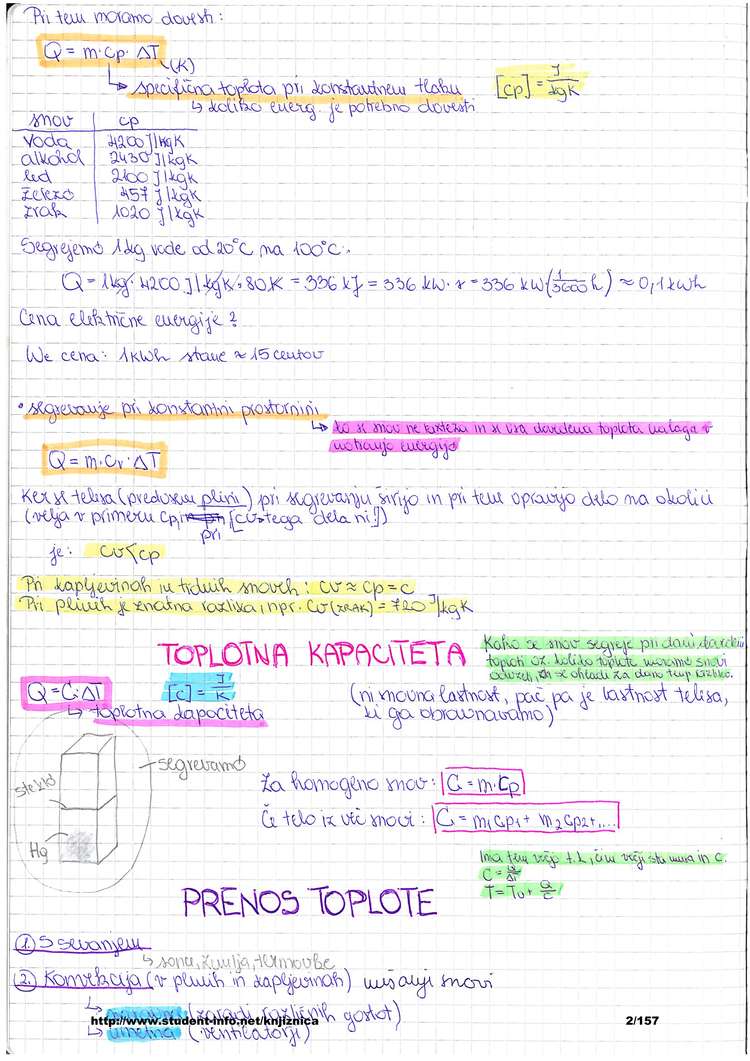 Pri tem moramo dovesti:
Q = m·cp·ΔT
(K)
↳ specifična toplota pri konstantnem tlaku [cp] = J/kgK
↳ koliko energ. je potrebno dovesti
snov | cp
voda | 4200 J/kgK
alkohol | 2430 J/kgK
led | 2100 J/kgK
železo | 457 J/kgK
zrak | 1020 J/kgK
Segrejemo 1kg vode od 20°C na 100°C.
Q = 1kg·4200 J/kgK·80K = 336 kJ = 336 kW·s = 336 kW(1/3600 h) ≈ 0,1 kWh
Cena električne energije?
We cena: 1kWh stane ≈ 15 centov
• segrevanje pri konstantni prostornini
↳ ko se snov ne razteza in se vsa dovedena toplota nalaga v
notranjo energijo
Q = m·cv·ΔT
Ker se telesa (predvsem plini) pri segrevanju širijo in pri tem opravijo delo na okolici
(velja v primeru cp, pri [cv→tega dela ni!])
je: cv < cp
Pri kapljevinah in trdnih snoveh: cv ≈ cp = c
Pri plinih je znatna razlika, npr. cv(ZRAK) = 720 J/kgK
TOPLOTNA KAPACITETA
Kako se snov segreje pri dani
toploti oz. koliko toplote moramo snovi
odvzeti, da se ohladi za dano temp razliko.
Q = C·ΔT [C] = J/K (ni snovna lastnost, pač pa je lastnost telesa,
↳ toplotna kapaciteta ki ga obravnavamo)
segrevamo
steklo
Hg
Za homogeno snov: C = m·cp
Če telo iz več snovi: C = m1cp1 + m2cp2+....
Ima tem večjo t.k., čim večji sta masa in c.
C = Q/ΔT
T = T0 + Q/C
PRENOS TOPLOTE
1. S sevanjem
↳ sonce, zemlja, termovke
2. Konvekcija (v plinih in kapljevinah) mešanje snovi
↳ (zaradi različnih gostot)
↳ umetna (ventilatorji)
http://www.student-info.net/knjiznica
2/157